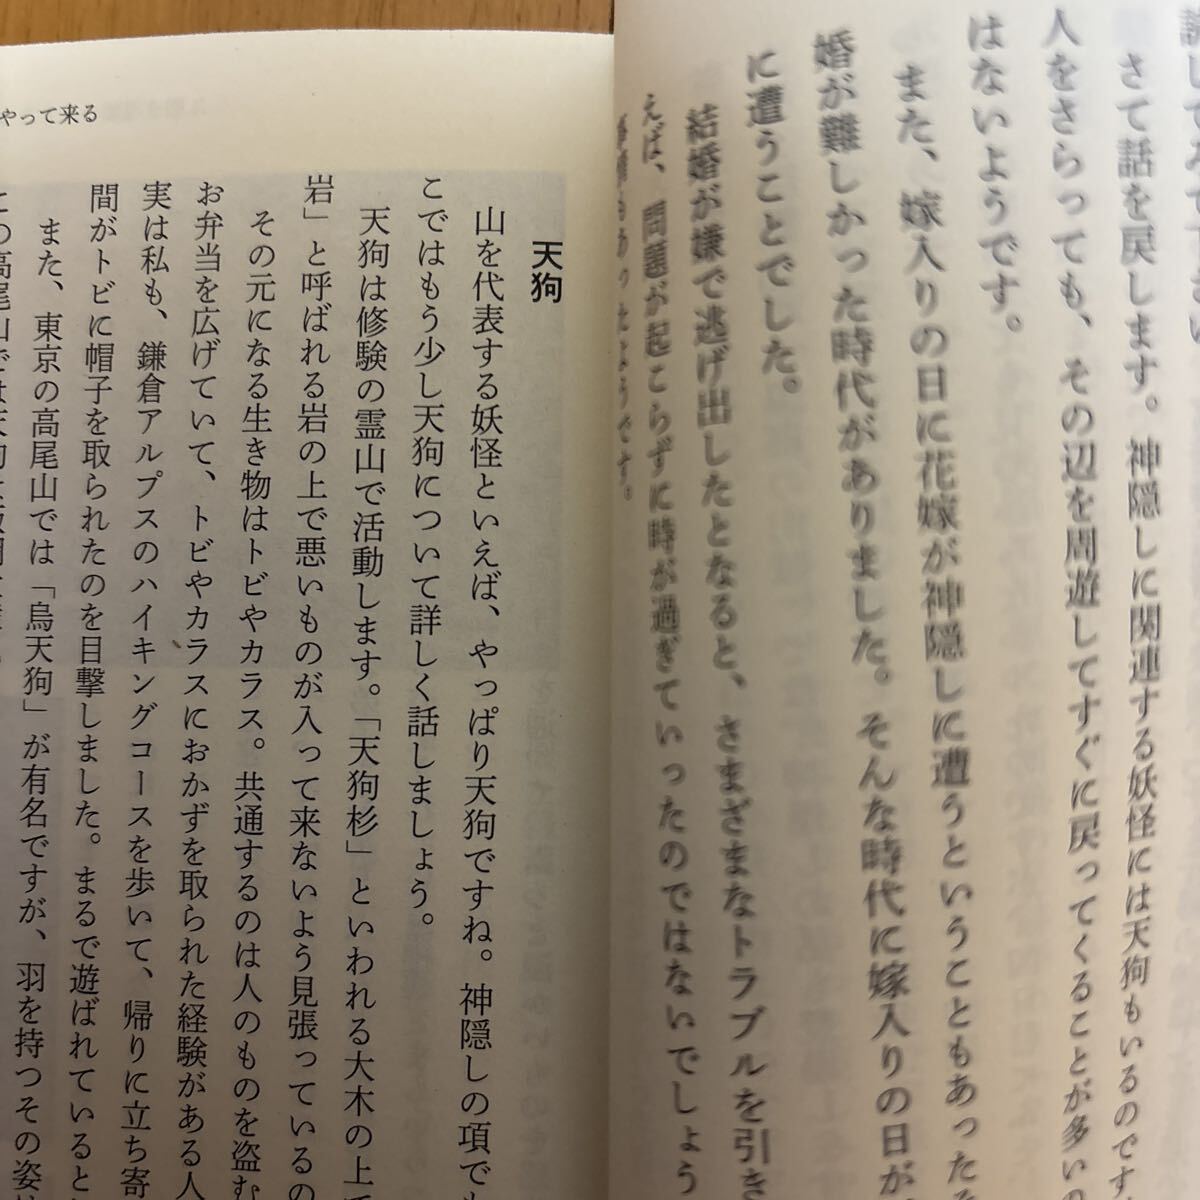 さて話を戻します。神隠しに関連する妖怪には天狗もいるのです
人をさらっても、その辺を周遊してすぐに戻ってくることが多い
はないようです。
また、嫁入りの日に花嫁が神隠しに遭うということもあった
婚が難しかった時代がありました。そんな時代に嫁入りの日が
に遭うことでした。
結婚が嫌で逃げ出したとなると、さまざまなトラブルを引き
えば、問題が起こらずに時が過ぎていったのではないでしょう
事情もあったようです。
やって来る
天狗
山を代表する妖怪といえば、やっぱり天狗ですね。神隠しの項でも
こではもう少し天狗について詳しく話しましょう。
天狗は修験の霊山で活動します。「天狗杉」といわれる大木の上
岩」と呼ばれる岩の上で悪いものが入って来ないよう見張っているの
その元になる生き物はトビやカラス。共通するのは人のものを盗む
お弁当を広げていて、トビやカラスにおかずを取られた経験がある人
実は私も、鎌倉アルプスのハイキングコースを歩いて、帰りに立ち寄
間がトビに帽子を取られたのを目撃しました。まるで遊ばれていると
また、東京の高尾山では「烏天狗」が有名ですが、羽を持つその姿
この高尾山では天狗は